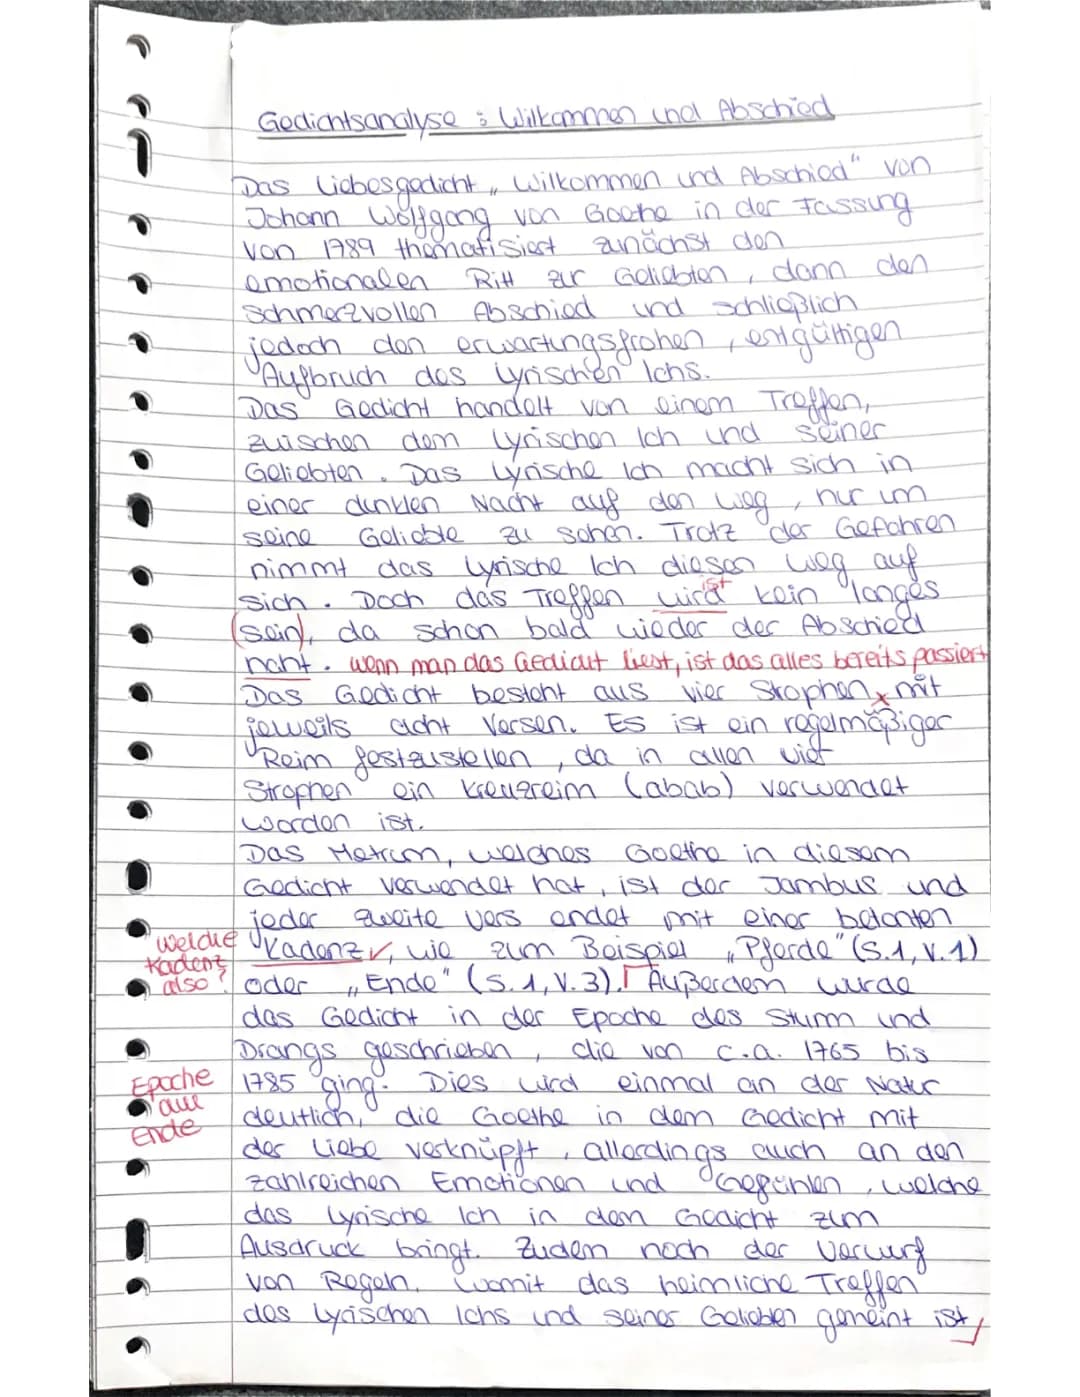 Gedichtsanalyse : Wilkommen und Abschied
Das Liebesgedicht „Wilkommen und Abschied" von
Johann Wolfgang von Goethe in der Fassung
von 1789 thematisiert zunächst den
emotionalen Ritt zur Geliebten, dann den
schmerzvollen Abschied und schließlich
jedoch den erwartungsfrohen, entgültigen
Aufbruch des lyrischen Ichs.
Das Gedicht handelt von einem Treffen,
zwischen dem lyrischen Ich und seiner
Geliebten. Das lyrische Ich macht sich in
einer dunklen Nacht auf den weg, nur um
seine Geliebte zu sehen. Trotz der Gefahren
nimmt das lyrische Ich diesen weg auf
ist
sich. Doch das Treffen wird kein langes
(sein), da schon bald wieder der Abschied
naht. wenn man das Gedicht liest, ist das alles bereits passiert
Das Gedicht besteht aus vier Strophen x mit
jeweils acht Versen. Es ist ein regelmäßiger
Reim festzustellen, da in allen vier
Strophen ein Kreuzreim (abab) verwendet
worden ist.
Das Metrum, welches Goethe in diesem
Gedicht verwendet hat, ist der Jambus und
jeder zweite Vers endet mit einer betonten
welche
Kadenz
also?
Kadenz, wie zum Beispiel „Pferde" (S.1, V.1)
oder „Ende" (S.1, V.3). Außerdem wurde
das Gedicht in der Epoche des Sturm und
Drangs geschrieben, die von c.a. 1765 bis
Epoche
am
Ende
1785 ging. Dies wird einmal an der Natur
deutlich, die Goethe in dem Gedicht mit
der Liebe verknüpft, allerdings auch an den
zahlreichen Emotionen und Gefühlen, welche
das lyrische Ich in dem Gedicht zum
Ausdruck bringt. Zudem noch der Verwurf
von Regeln, womit das heimliche Treffen
des lyrischen Ichs und seiner Gelieben gemeint ist